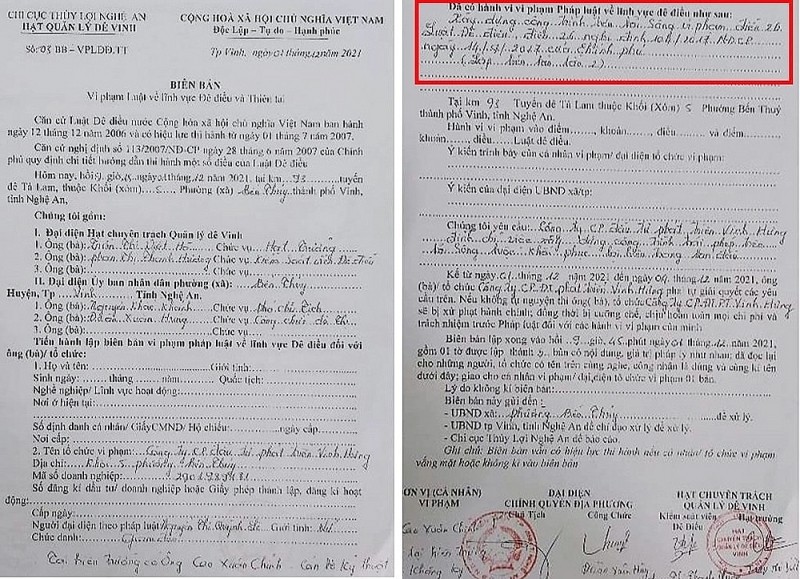 CHI CỤC THỦY LỢI NGHỆ AN
HẠT QUẢN LÝ ĐÊ VINH
Số: 03 BB - VPLĐĐ.TT
CỘNG HOÀ XÃ HỘI CHỦ NGHĨA VIỆT NAM
Độc Lập - Tự do - Hạnh phúc
Tp Vinh, ngày 01 tháng 12 năm 2021
BIÊN BẢN
Vi phạm Luật về lĩnh vực Đê điều và Thiên tai
Căn cứ Luật Đê điều nước Cộng hòa xã hội chủ nghĩa Việt Nam ban hành
ngày 12 tháng 12 năm 2006 và có hiệu lực thi hành từ ngày 01 tháng 7 năm 2007.
Căn cứ nghị định số 113/2007/NĐ-CP ngày 28 tháng 6 năm 2007 của Chính
phủ quy định chi tiết hướng dẫn thi hành một số điều của Luật Đê điều
Hôm nay, hồi 9 giờ, 15, ngày 01 tháng 12 năm 2021, tại km 93 tuyến
đê Tả Lam, thuộc Khối (xóm) 5 Phường (xã) Bến Thủy thành phố Vinh,
tỉnh Nghệ An.
Chúng tôi gồm:
I. Đại diện Hạt chuyên trách Quản lý đê Vinh
1. Ông (bà): Trần Thị Việt Hà Chức vụ Hạt trưởng
2. Ông (bà): Phan Thị Thanh Hương Chức vụ Kiểm soát viên Đê điều
3. Ông (bà): Chức vụ
II. Đại diện Ủy ban nhân dân phường (xã): Bến Thủy
Huyện, Tp Vinh Tỉnh Nghệ An.
1. Ông (bà): Nguyễn Khắc Khánh Chức vụ Phó chủ tịch
2. Ông (bà): Đoàn Xuân Hùng Chức vụ Công chức đô thị
3. Ông (bà): Chức vụ
Tiến hành lập biên bản vi phạm pháp luật về lĩnh vực Đê điều đối với
ông (bà)/ tổ chức:
1. Họ và tên: Giới tính:
Sinh ngày: tháng năm Quốc tịch:
Nghề nghiệp/ Lĩnh vực hoạt động:
Nơi ở hiện tại:
Số định danh cá nhân/ GiấyCMND/ Hộ chiếu: ngày cấp
Nơi cấp:
2. Tên tổ chức vi phạm: Công Ty C.P đầu tư phát triển Vinh Hưng
Địa chỉ: Khối 5 phường Bến Thủy
Mã số doanh nghiệp:
Số đăng kí đầu tư/ doanh nghiệp hoặc Giấy phép thành lập, đăng kí hoạt
động:
Cấp ngày
Người đại theo pháp luật Nguyễn Thị Giới tính: Nữ
Chức danh: Giám đốc
Tại hiện trường có Ông Cao Xuân Chính - Cán bộ kỹ thuật
Đã có hành vi vi phạm Pháp luật về lĩnh vực đê điều như sau:
Xây dựng công trình trên bãi sông vi phạm điều 26
Luật Đê điều, điều 26 nghị định 104/2017/NĐ.CP
ngày 14/9/2017 của Chính phủ
(Lập biên bản lần 2)
Tại km 93 Tuyến đê Tả Lam thuộc Khối (Xóm) 5 Phường Bến Thuỷ
thành phố Vinh, tỉnh Nghệ An.
Hành vi vi phạm vào điểm, khoản, điều và điểm
khoản, điều Luật đê điều.
Ý kiến trình bày của cá nhân vi phạm/ đại diện tổ chức vi phạm:
Ý kiến của đại diện UBND xã/tp:
Chúng tôi yêu cầu: Công ty CP đầu tư phát triển Vinh Hưng
đình chỉ việc xây dựng công trình trái phép trên
bãi Sông, khôi phục lại hiện trạng ban đầu
Kể từ ngày 01 tháng 12 năm 2021 đến ngày 04 tháng 12 năm 2021,
ông (bà)/ tổ chức Công ty CP.ĐT phát triển Vinh Hưng phải tự giải quyết các yêu
cầu trên. Nếu không tự nguyện thi ông( bà), tổ chức Công ty CP.ĐT.PT Vinh Hưng
sẽ bị xử phạt hành chính; đồng thời bị cưỡng chế, chịu hoàn toàn mọi chi phí và
trách nhiệm trước Pháp luật đối với các hành vi vi phạm của mình
Biên bản lập xong vào hồi 9 giờ, 45 phút ngày 01 tháng 12 năm 2021,
gồm 01 tờ được lập thành 5 bản có nội dung, giá trị pháp lý như nhau; đã đọc lại
cho những người, tổ chức có tên trên cùng nghe, công nhận là đúng và cùng kí tên
dưới đây; giao cho cá nhân vi phạm/ đại diện tổ chức vi phạm 01 bản.
Lý do không kí biên bản:
Biên bản này gửi đến:
- UBND xã: phường Bến Thủy để xử lý.
- UBND tp Vinh, tỉnh Nghệ An để chỉ đạo xử lý để xử lý.
- Chi cục Thủy Lợi Nghệ An để báo cáo.
Ghi chú: Biên bản vẫn có hiệu lực thi hành nếu cá nhân/ tổ chức vi phạm
vắng mặt hoặc không kí vào biên bản
ƠN VỊ (CÁ NHÂN)
VI PHẠM
ĐẠI DIỆN
CHÍNH QUYỀN ĐỊA PHƯƠNG
Chủ Tịch Công Chức
HẠT CHUYÊN TRÁCH
QUẢN LÝ ĐÊ VINH
Kiểm soát viên Hạt trưởng
Đê Điều
Cao Xuân Chính
tại hiện trường
không ký
HẠT
QUẢN LÝ ĐÊ
VINH